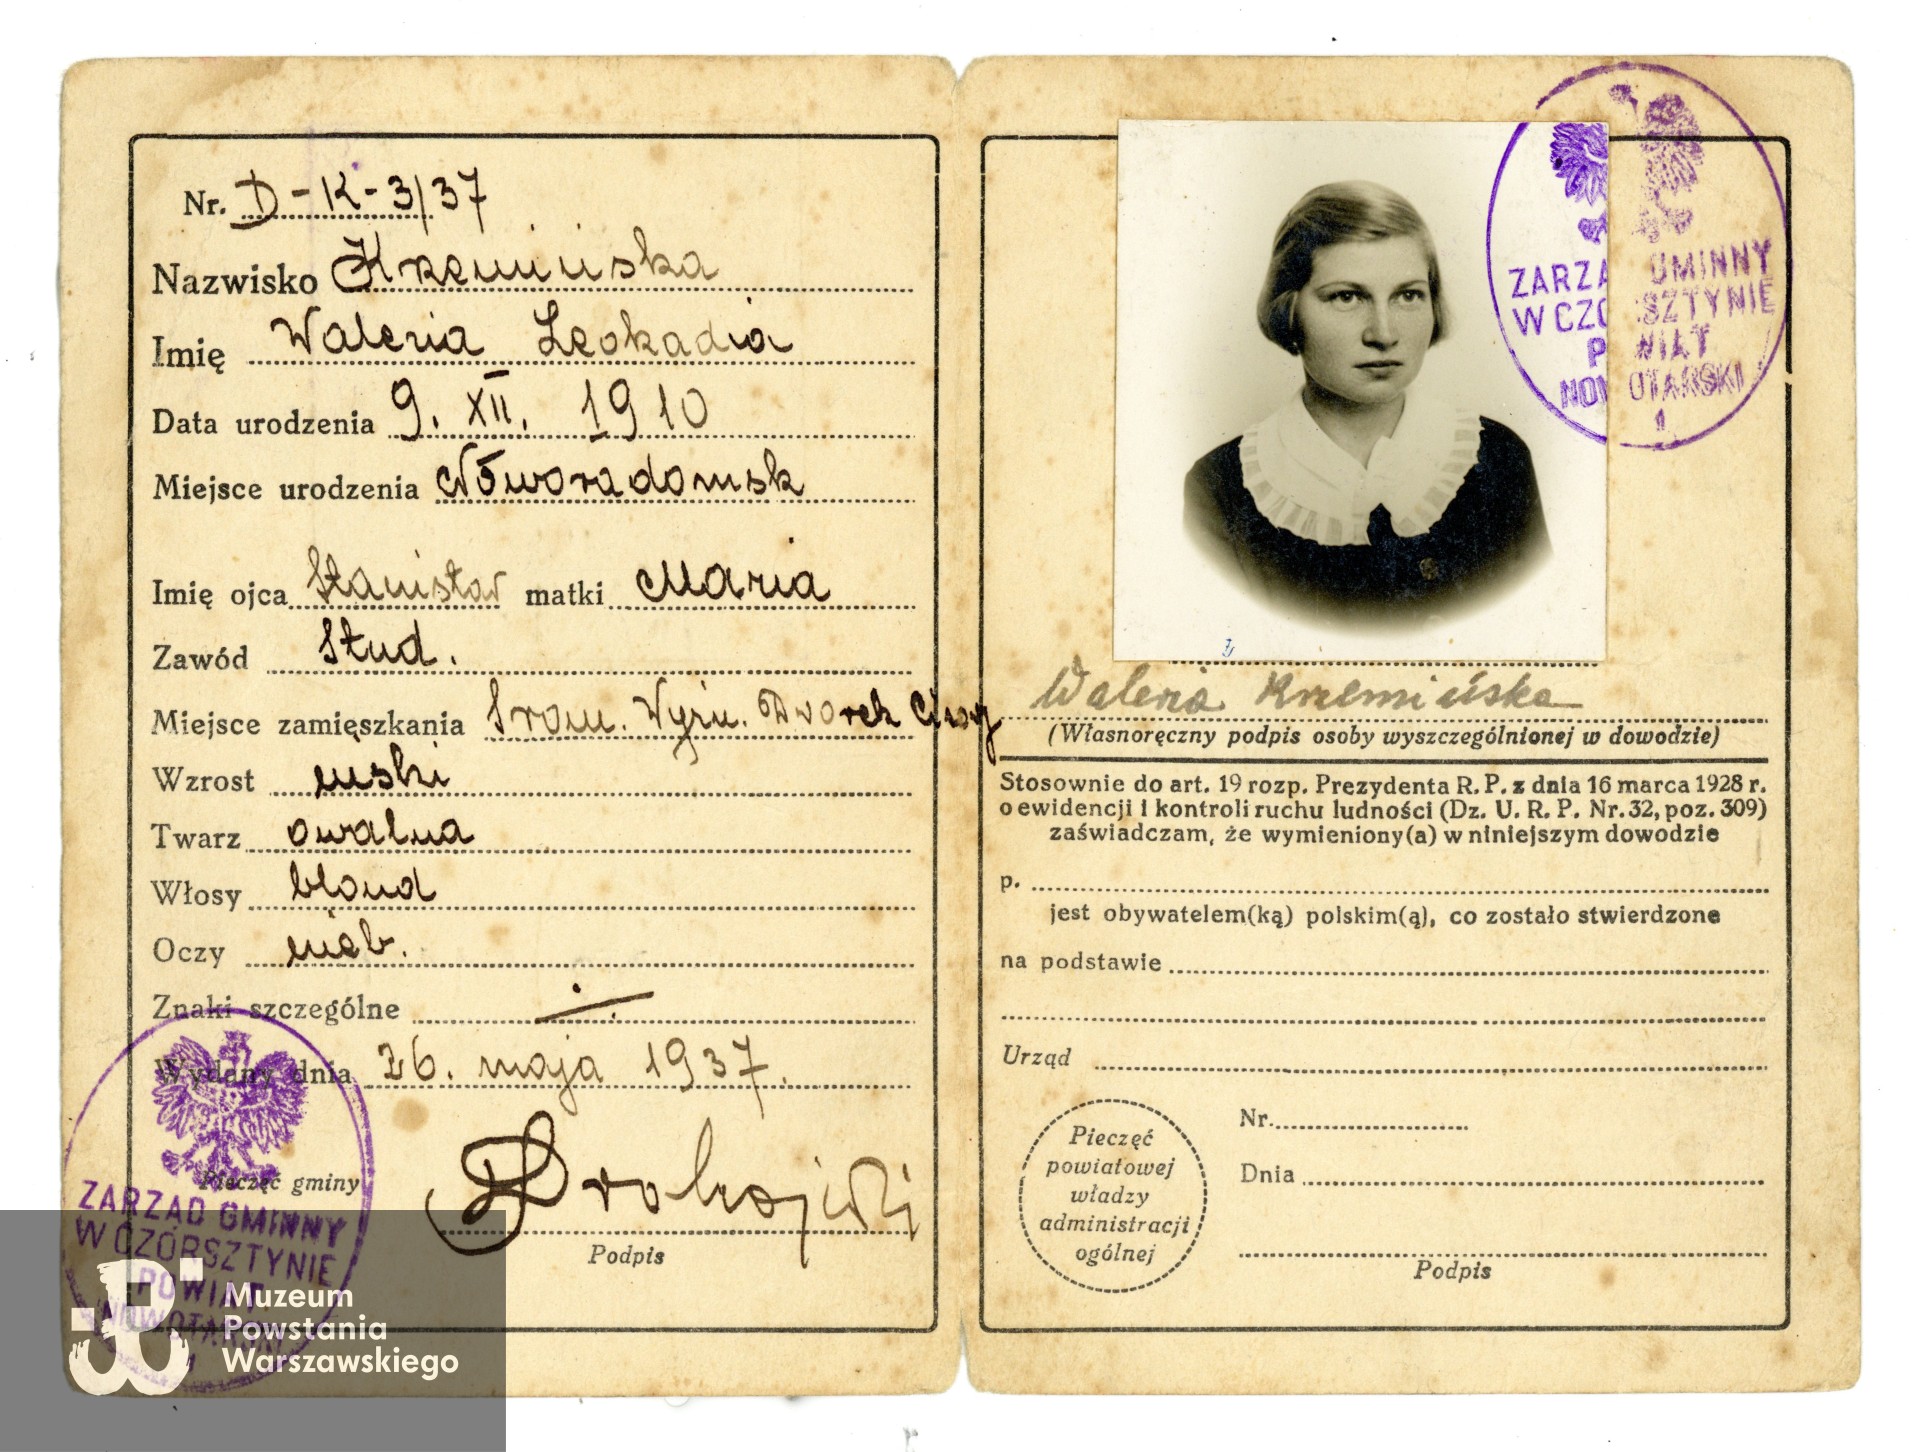 Nr. D-K-3/37
Nazwisko Krzemińska
Imię Waleria Leokadia
Data urodzenia 9. XII. 1910
Miejsce urodzenia Nóworadomsk
Imię ojca Stanisław matki Maria
Zawód Stud.
Miejsce zamięszkania Srom. Wyżn. Dworek Cisowy
Wzrost niski
Twarz owalna
Włosy blond
Oczy nieb.
Znaki szczególne
Wydany dnia 26. maja 1937.
Pieczęć gminy
ZARZĄD GMINNY
W CZORSZTYNIE
POWIAT
NOWOTARSKI
1
Podpis
Muzeum
Powstania
Warszawskiego
ZARZĄD GMINNY
W CZORSZTYNIE
POWIAT
NOWOTARSKI
1
Waleria Krzemińska
(Własnoręczny podpis osoby wyszczególnionej w dowodzie)
Stosownie do art. 19 rozp. Prezydenta R. P. z dnia 16 marca 1928 r.
o ewidencji i kontroli ruchu ludności (Dz. U. R. P. Nr. 32, poz. 309)
zaświadczam, że wymieniony(a) w niniejszym dowodzie
p.
jest obywatelem(ką) polskim(ą), co zostało stwierdzone
na podstawie
Urząd
Pieczęć
powiatowej
władzy
administracji
ogólnej
Nr.
Dnia
Podpis